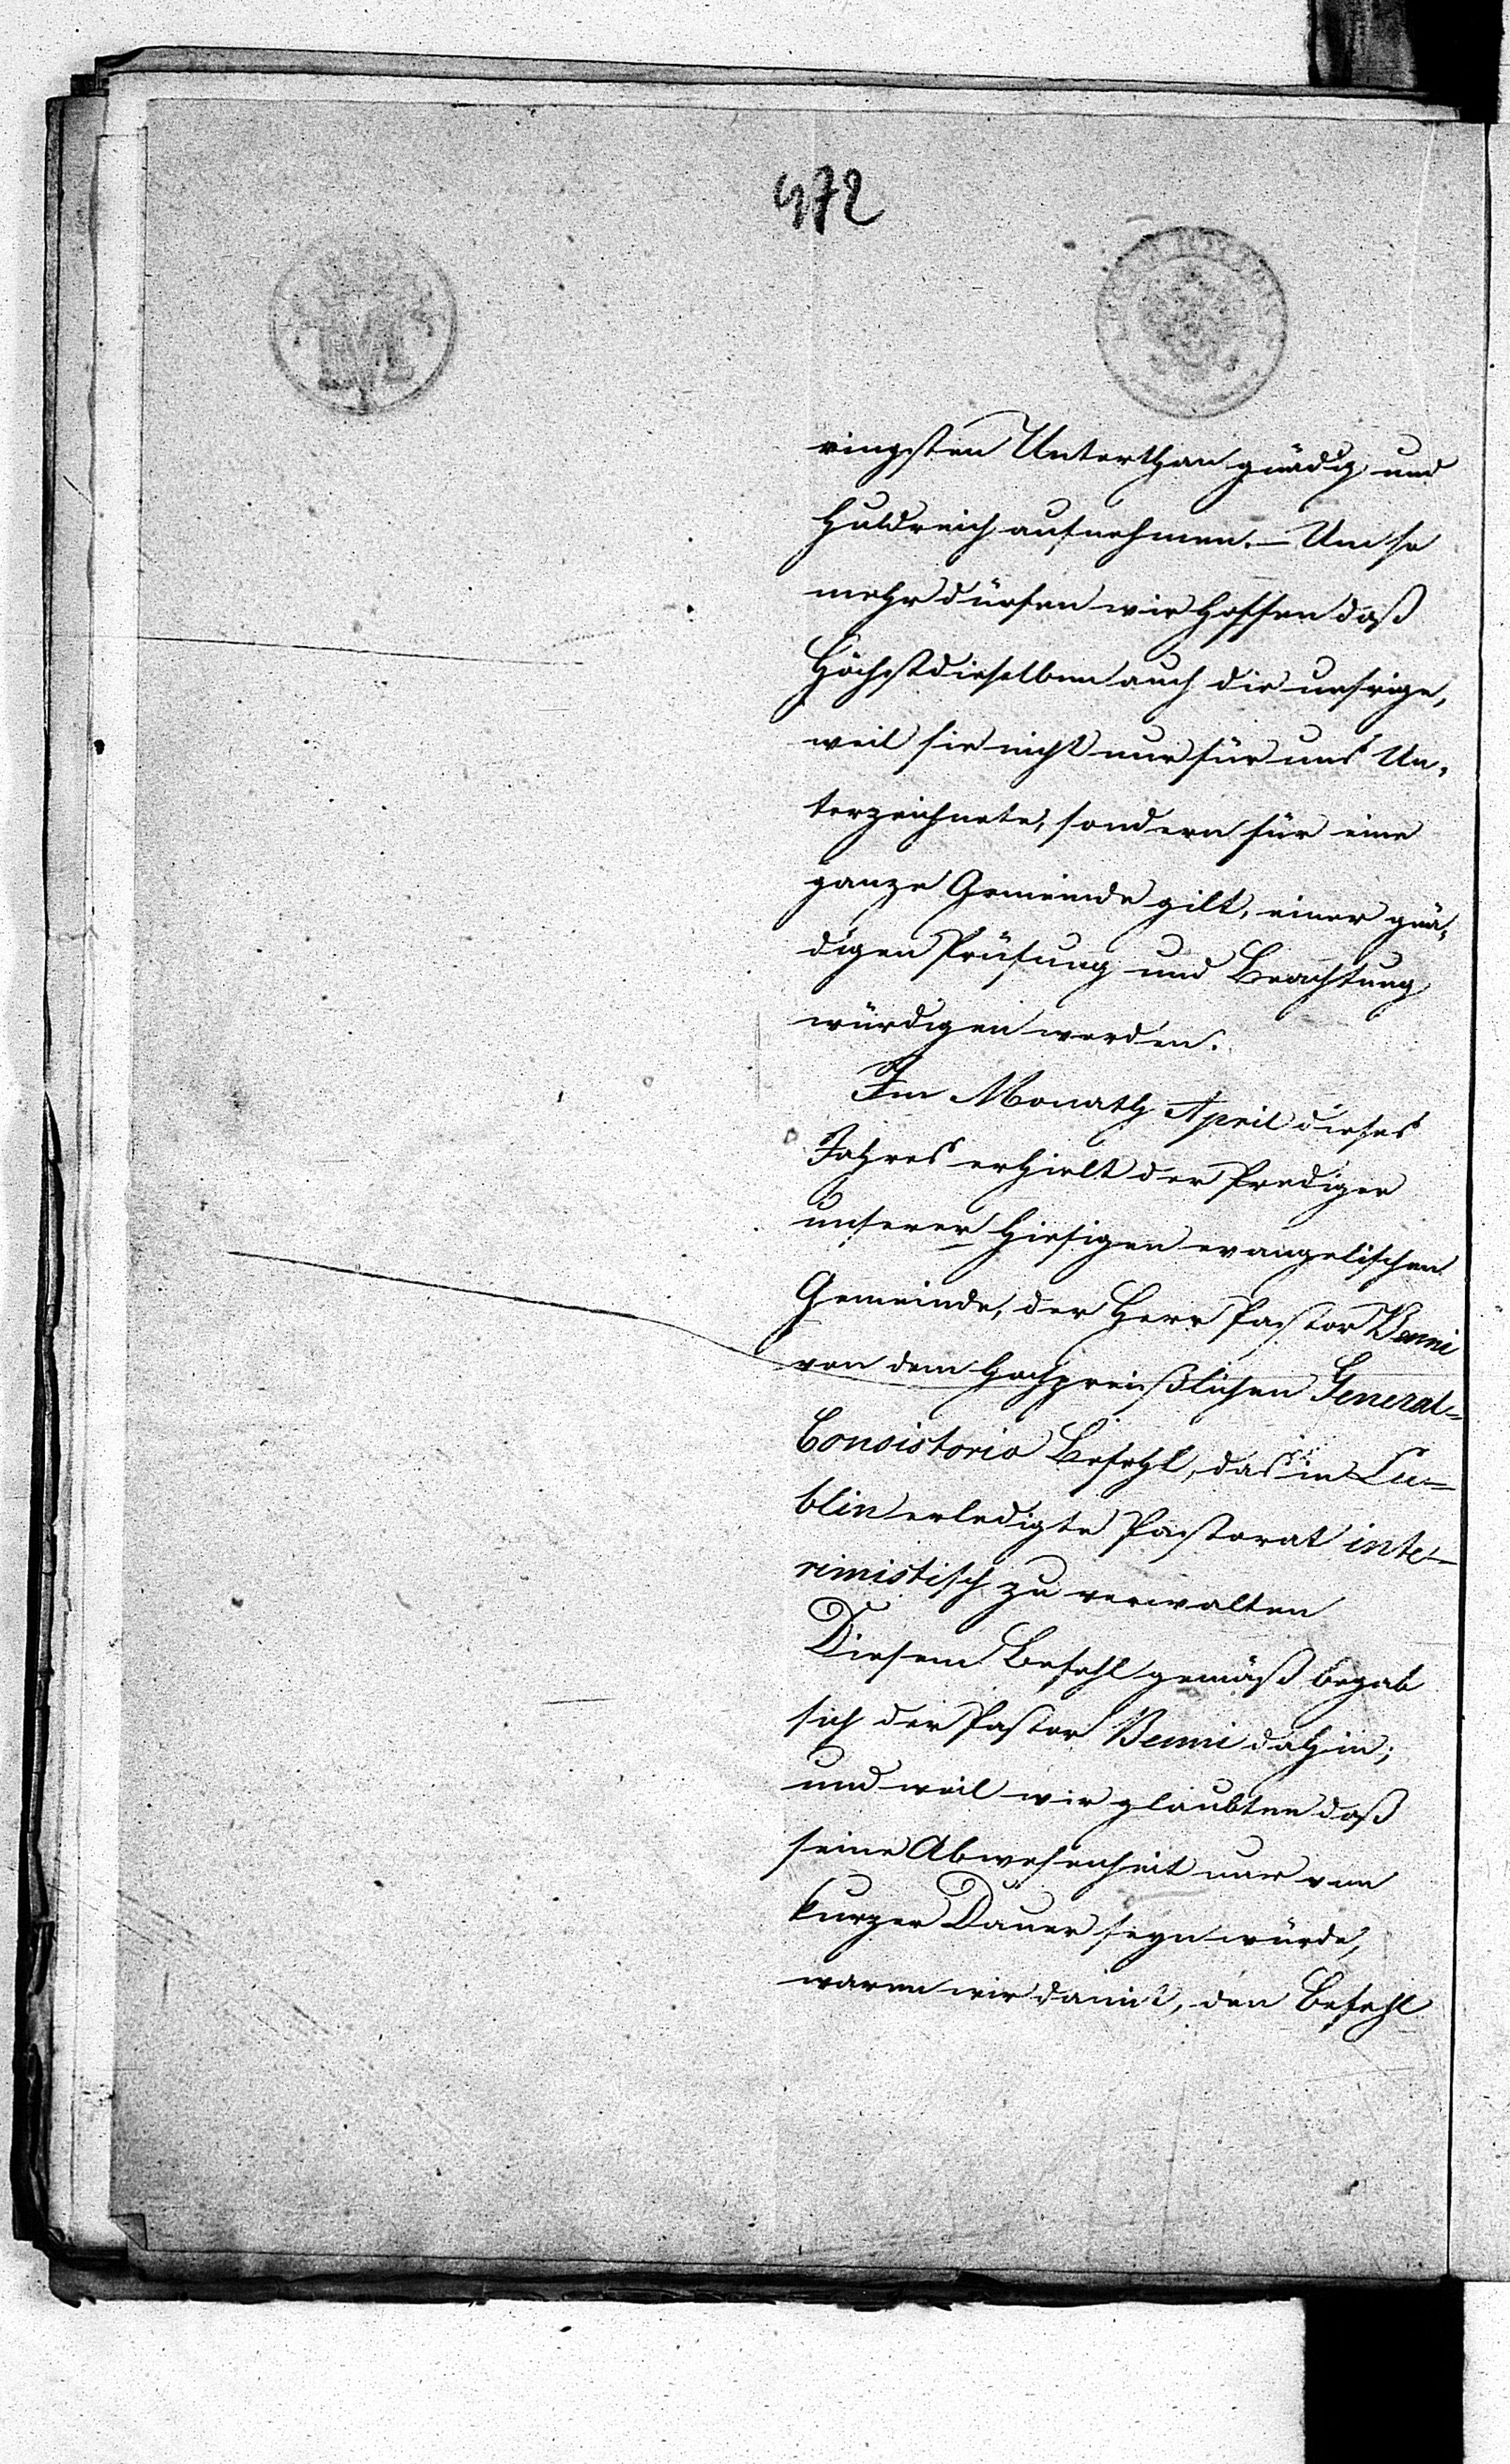 472
ringsten Unterthan gnädig und
huldreich aufnehmen. – Um so
mehr dürfen wir hoffen daß
Höchstdieselben auch die unsrige,
weil sie nicht nur für uns Un-
terzeichnete, sondern für eine
ganze Gemeinde gilt, einer gnä-
digen Prüfung und Beachtung
würdigen werden.
Im Monath April dieses
Jahres erhielt der Prediger
unserer hiesigen evangelischen
Gemeinde, der Herr Pastor Benni
von dem hochpreißlichen General-
Consistorio Befehl, das in Lu-
blin erledigte Pastorat inte-
rimistisch zu verwalten
Diesem Befehl gemäß begab
sich der Pastor Benni dahin;
und weil wir glaubten daß
seine Abwesenheit nur von
kurzer Dauer seyn würde,
waren wir damit, den Befehl